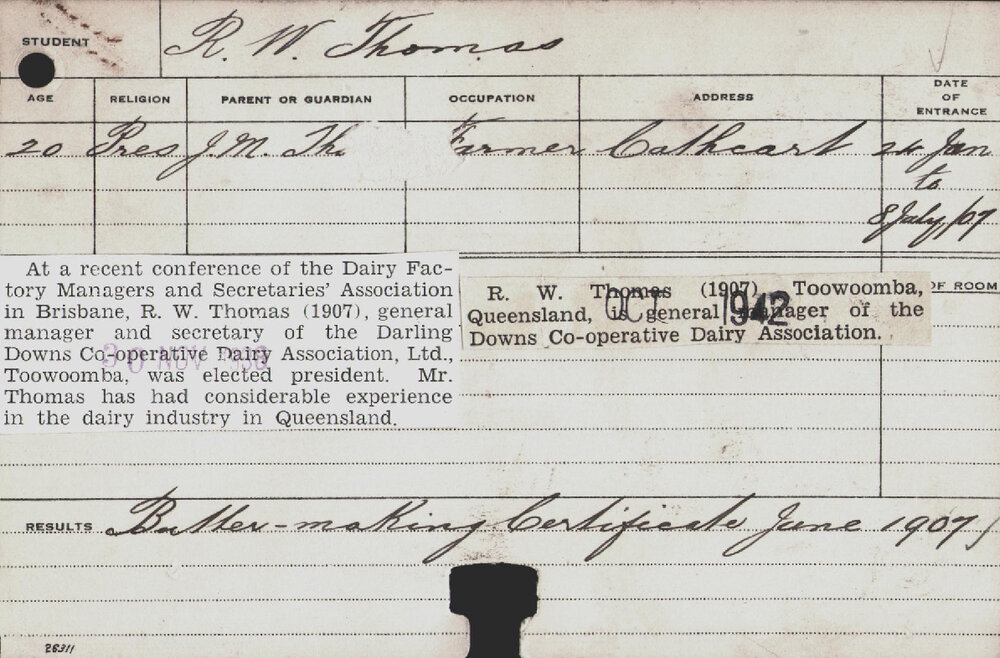 STUDENT R. W. Thomas
AGE RELIGION PARENT OR GUARDIAN OCCUPATION ADDRESS DATE OF ENTRANCE
20 Pres J. M. Tho Farmer Cathcart 24 Jan
to
8 July /07
At a recent conference of the Dairy Fac-
tory Managers and Secretaries' Association
in Brisbane, R. W. Thomas (1907), general
manager and secretary of the Darling
Downs Co-operative Dairy Association, Ltd.,
Toowoomba, was elected president. Mr.
Thomas has had considerable experience
in the dairy industry in Queensland.
30 NOV 
R. W. Thomas (1907), Toowoomba,
Queensland, is general manager of the
Downs Co-operative Dairy Association.
OCT 1942
OF ROOM
RESULTS Butter-making Certificate June 1907
26311